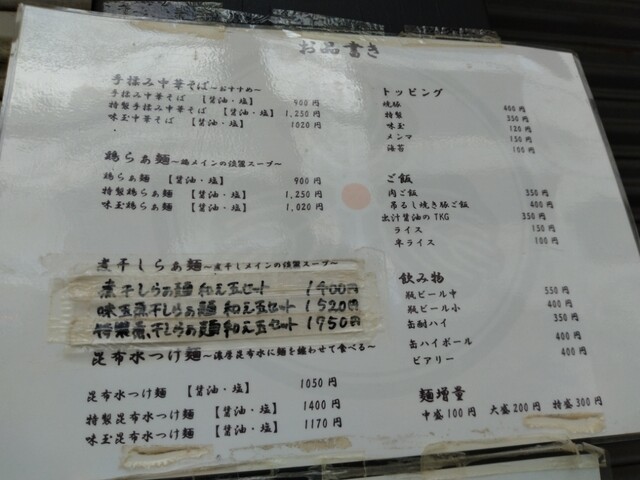 お品書き
手揉み中華そば～おすすめ～
手揉み中華そば 【醤油・塩】 900円
特製手揉み中華そば 【醤油・塩】 1,250円
味玉中華そば 【醤油・塩】 1020円
鶏らぁ麺～鶏メインの淡麗スープ～
鶏らぁ麺 【醤油・塩】 900円
特製鶏らぁ麺 【醤油・塩】 1,250円
味玉鶏らぁ麺 【醤油・塩】 1,020円
煮干しらぁ麺～煮干しメインの淡麗スープ～
煮干しらぁ麺 和え玉セット 1400円
味玉煮干しらぁ麺 和え玉セット 1520円
特製煮干しらぁ麺 和え玉セット 1750円
昆布水つけ麺～濃厚昆布水に麺を纏わせて食べる～
昆布水つけ麺 【醤油・塩】 1050円
特製昆布水つけ麺 【醤油・塩】 1400円
味玉昆布水つけ麺 【醤油・塩】 1170円
トッピング
焼豚 400円
特製 350円
味玉 120円
メンマ 150円
海苔 100円
ご飯
肉ご飯 350円
吊るし焼き豚ご飯 400円
出汁醤油のTKG 350円
ライス 150円
半ライス 100円
飲み物
瓶ビール中 550円
瓶ビール小 400円
缶酎ハイ 350円
缶ハイボール 400円
ビアリー 400円
麺増量
中盛100円 大盛200円 特盛300円